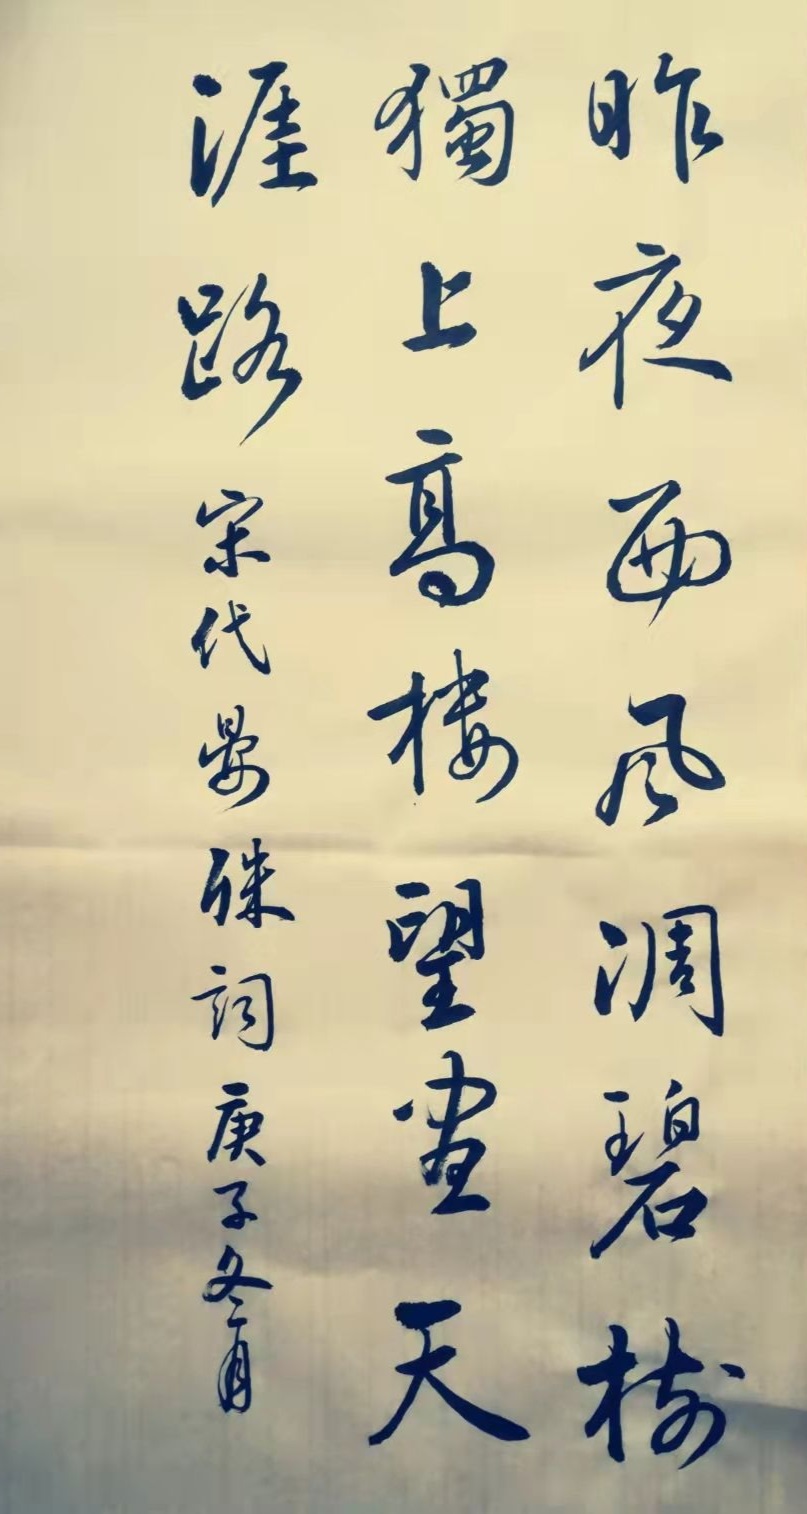 昨夜西风凋碧树
獨上高楼望尽天
涯路 宋代晏殊詞 庚子冬月